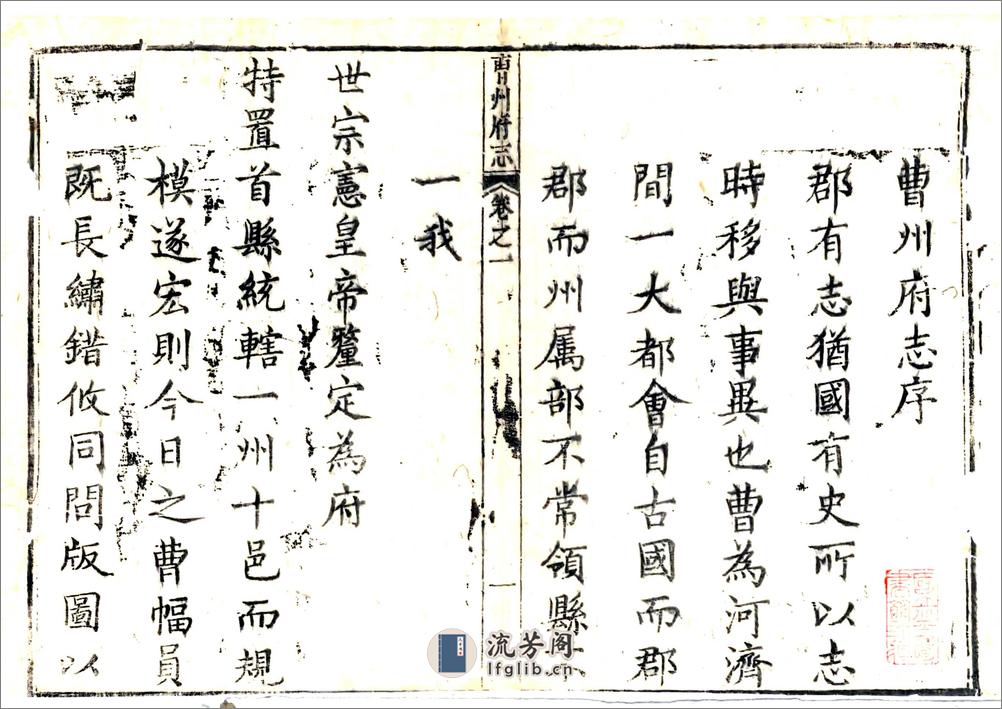 曹州府志序
郡有志猶國有史所以志
時移與事異也曹為河濟
間一大都會自古國而郡
郡而州屬部不常領縣
一我
曹州府志 卷之一 一
世宗憲皇帝釐定為府
特置首縣統轄一州十邑而規
模遂宏則今日之曹幅員
既長繡錯攸同問版圖以
流芳阁
lfglib.com